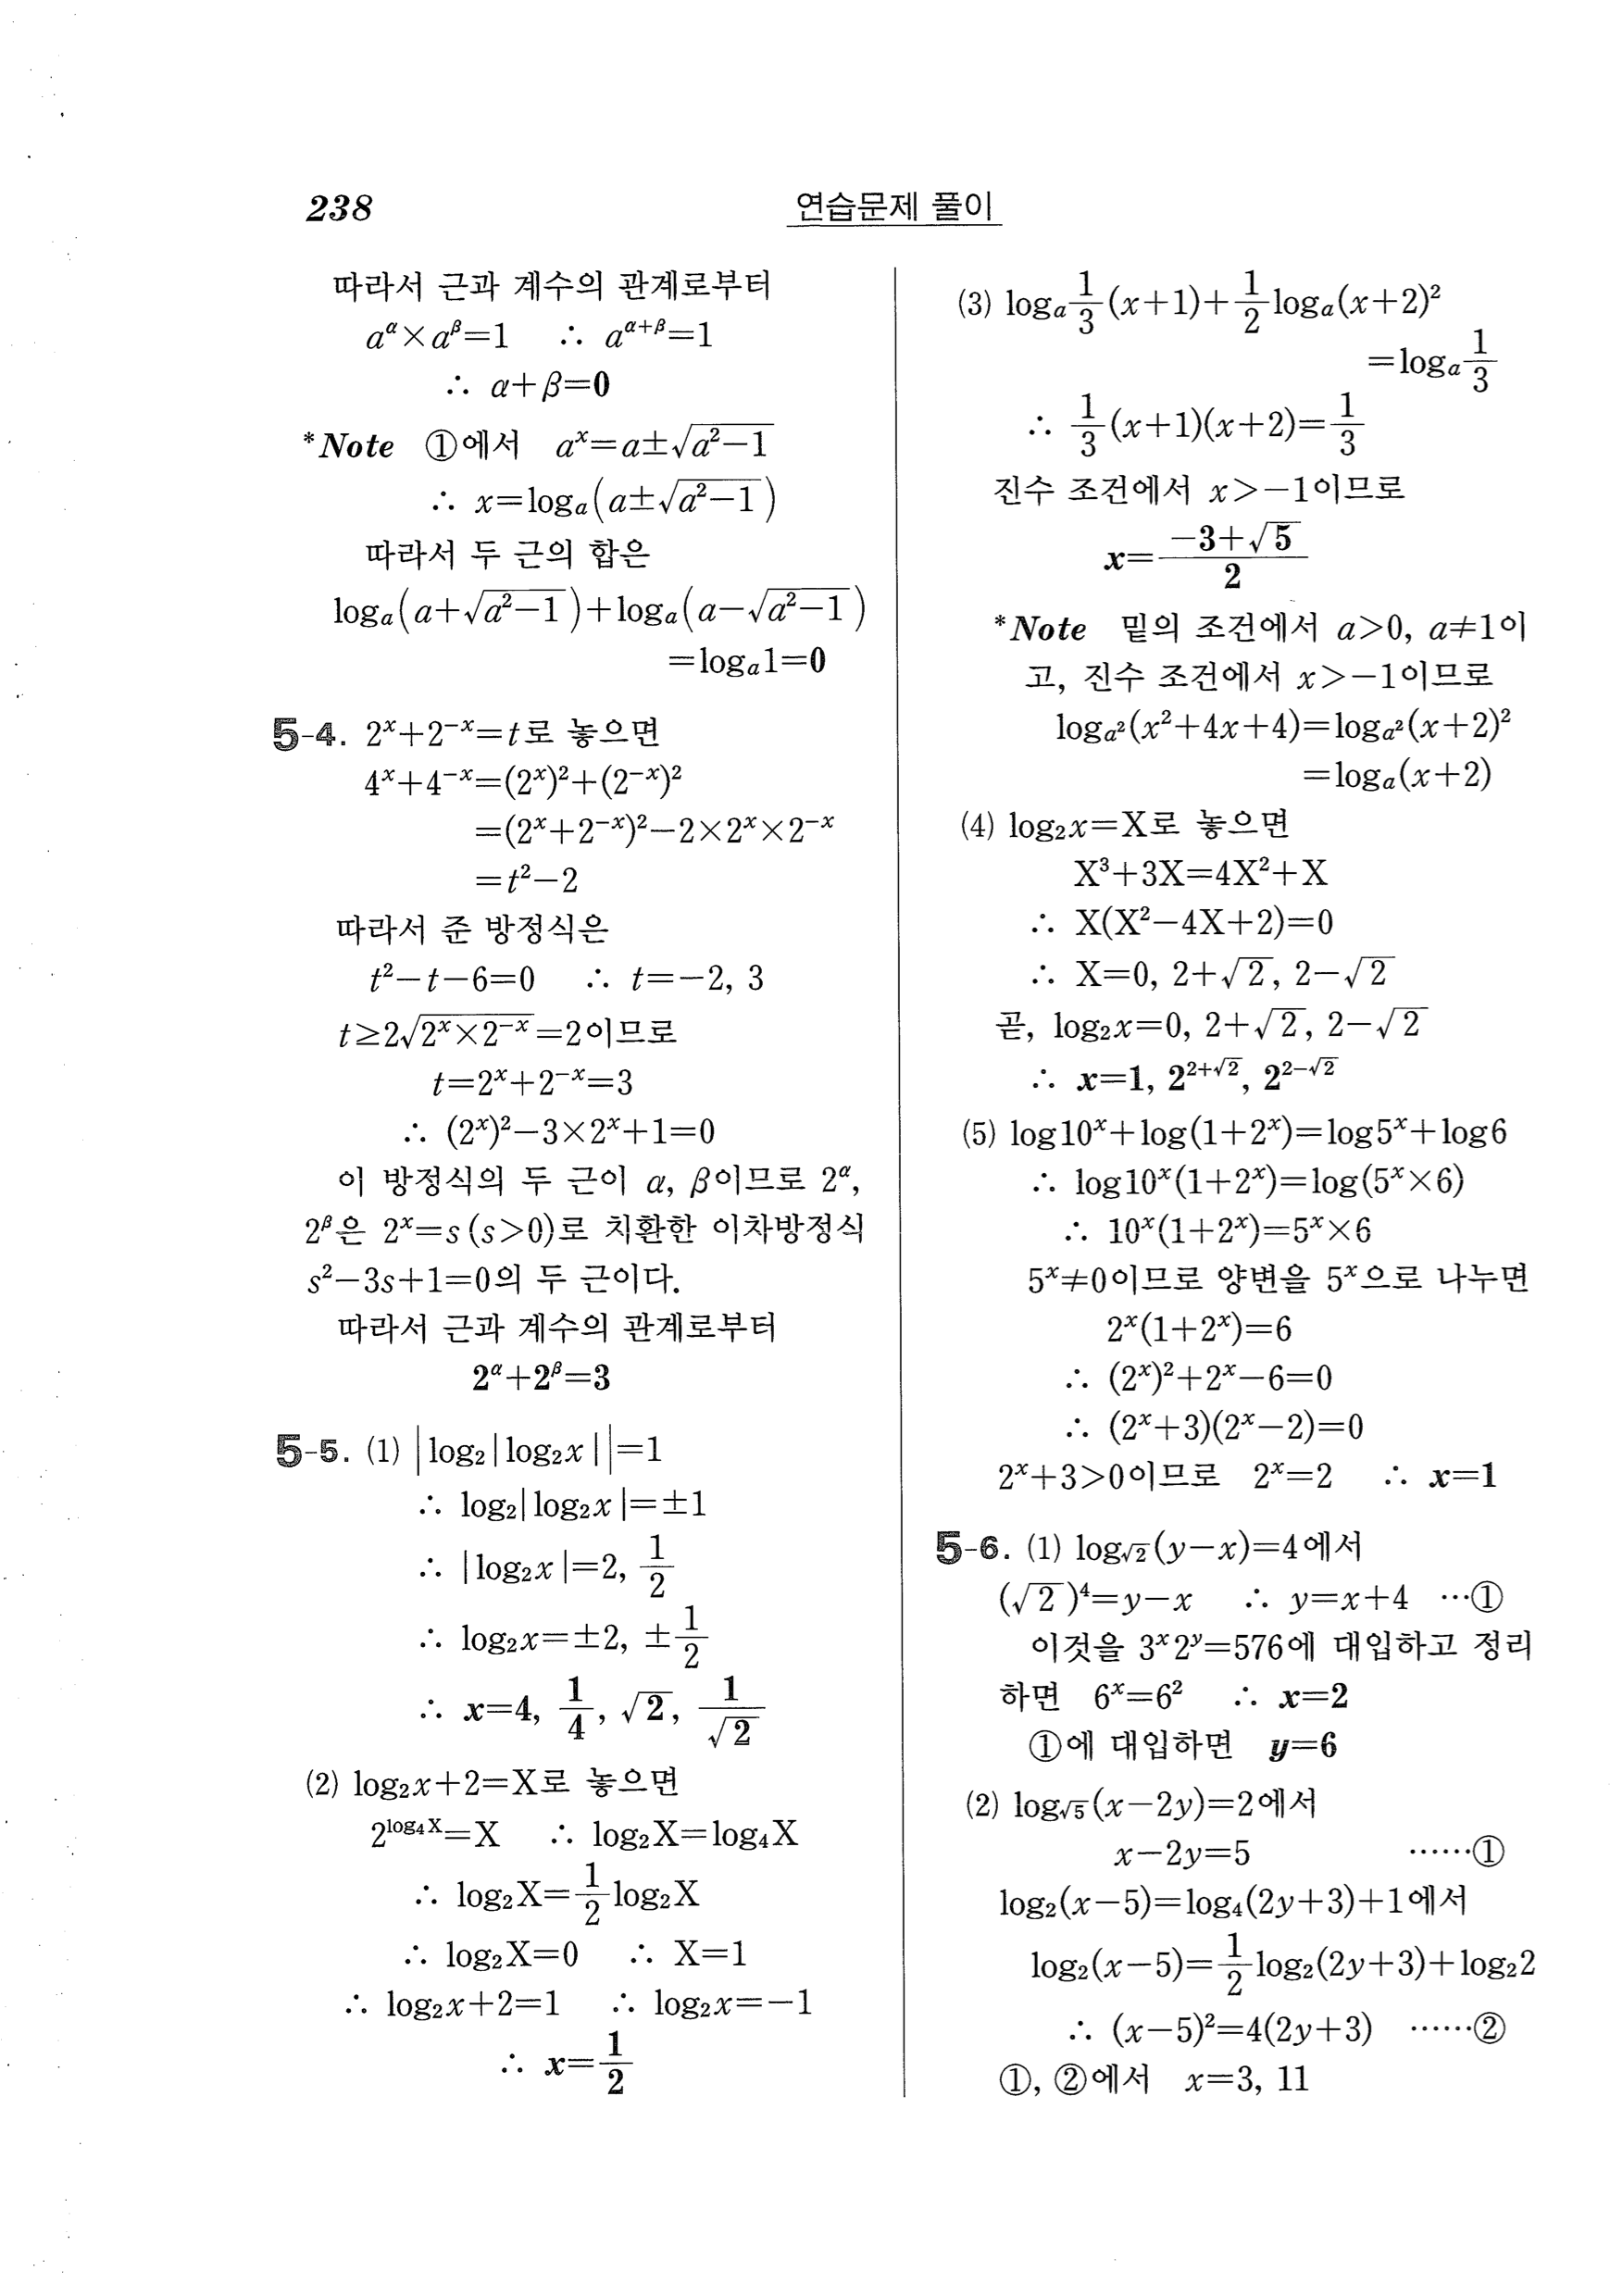 238
연습문제 풀이
따라서 근과 계수의 관계로부터
a^α×a^β=1 ∴ a^(α+β)=1
∴ α+β=0
*Note ①에서 a^x=a±√(a²−1)
∴ x=log_a(a±√(a²−1))
따라서 두 근의 합은
log_a(a+√(a²−1))+log_a(a−√(a²−1))
=log_a1=0
5-4. 2^x+2^(−x)=t로 놓으면
4^x+4^(−x)=(2^x)²+(2^(−x))²
=(2^x+2^(−x))²−2×2^x×2^(−x)
=t²−2
따라서 준 방정식은
t²−t−6=0 ∴ t=−2, 3
t≥2√(2^x×2^(−x))=2이므로
t=2^x+2^(−x)=3
∴ (2^x)²−3×2^x+1=0
이 방정식의 두 근이 α, β이므로 2^α,
2^β은 2^x=s(s>0)로 치환한 이차방정식
s²−3s+1=0의 두 근이다.
따라서 근과 계수의 관계로부터
2^α+2^β=3
5-5. (1) |log₂|log₂x||=1
∴ log₂|log₂x|=±1
∴ |log₂x|=2, 1/2
∴ log₂x=±2, ±1/2
∴ x=4, 1/4, √2, 1/√2
(2) log₂x+2=X로 놓으면
2^(log₄X)=X ∴ log₂X=log₄X
∴ log₂X=1/2 log₂X
∴ log₂X=0 ∴ X=1
∴ log₂x+2=1 ∴ log₂x=−1
∴ x=1/2
(3) log_a 1/3(x+1)+1/2 log_a(x+2)²
=log_a 1/3
∴ 1/3(x+1)(x+2)=1/3
진수 조건에서 x>−1이므로
x=(−3+√5)/2
*Note 밑의 조건에서 a>0, a≠1이
고, 진수 조건에서 x>−1이므로
log_a²(x²+4x+4)=log_a²(x+2)²
=log_a(x+2)
(4) log₂x=X로 놓으면
X³+3X=4X²+X
∴ X(X²−4X+2)=0
∴ X=0, 2+√2, 2−√2
곧, log₂x=0, 2+√2, 2−√2
∴ x=1, 2^(2+√2), 2^(2−√2)
(5) log10^x+log(1+2^x)=log5^x+log6
∴ log10^x(1+2^x)=log(5^x×6)
∴ 10^x(1+2^x)=5^x×6
5^x≠0이므로 양변을 5^x으로 나누면
2^x(1+2^x)=6
∴ (2^x)²+2^x−6=0
∴ (2^x+3)(2^x−2)=0
2^x+3>0이므로 2^x=2 ∴ x=1
5-6. (1) log_√2(y−x)=4에서
(√2)⁴=y−x ∴ y=x+4 …①
이것을 3^x2^y=576에 대입하고 정리
하면 6^x=6² ∴ x=2
①에 대입하면 y=6
(2) log_√5(x−2y)=2에서
x−2y=5 ……①
log₂(x−5)=log₄(2y+3)+1에서
log₂(x−5)=1/2 log₂(2y+3)+log₂2
∴ (x−5)²=4(2y+3) ……②
①, ②에서 x=3, 11